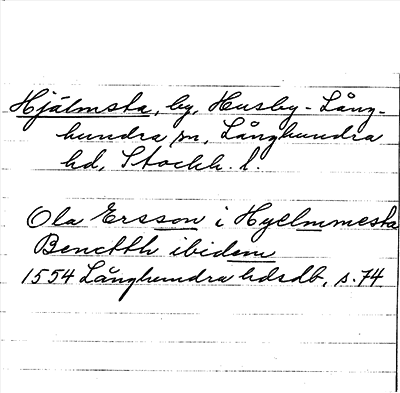 Hjälmsta, by, Husby-Lång-
hundra sn, Långhundra
hd, Stockh. l.
Ola Ersson i Hyelmmesta
Benctth ibidem
1554 Långhundra hdsdb, s. 74